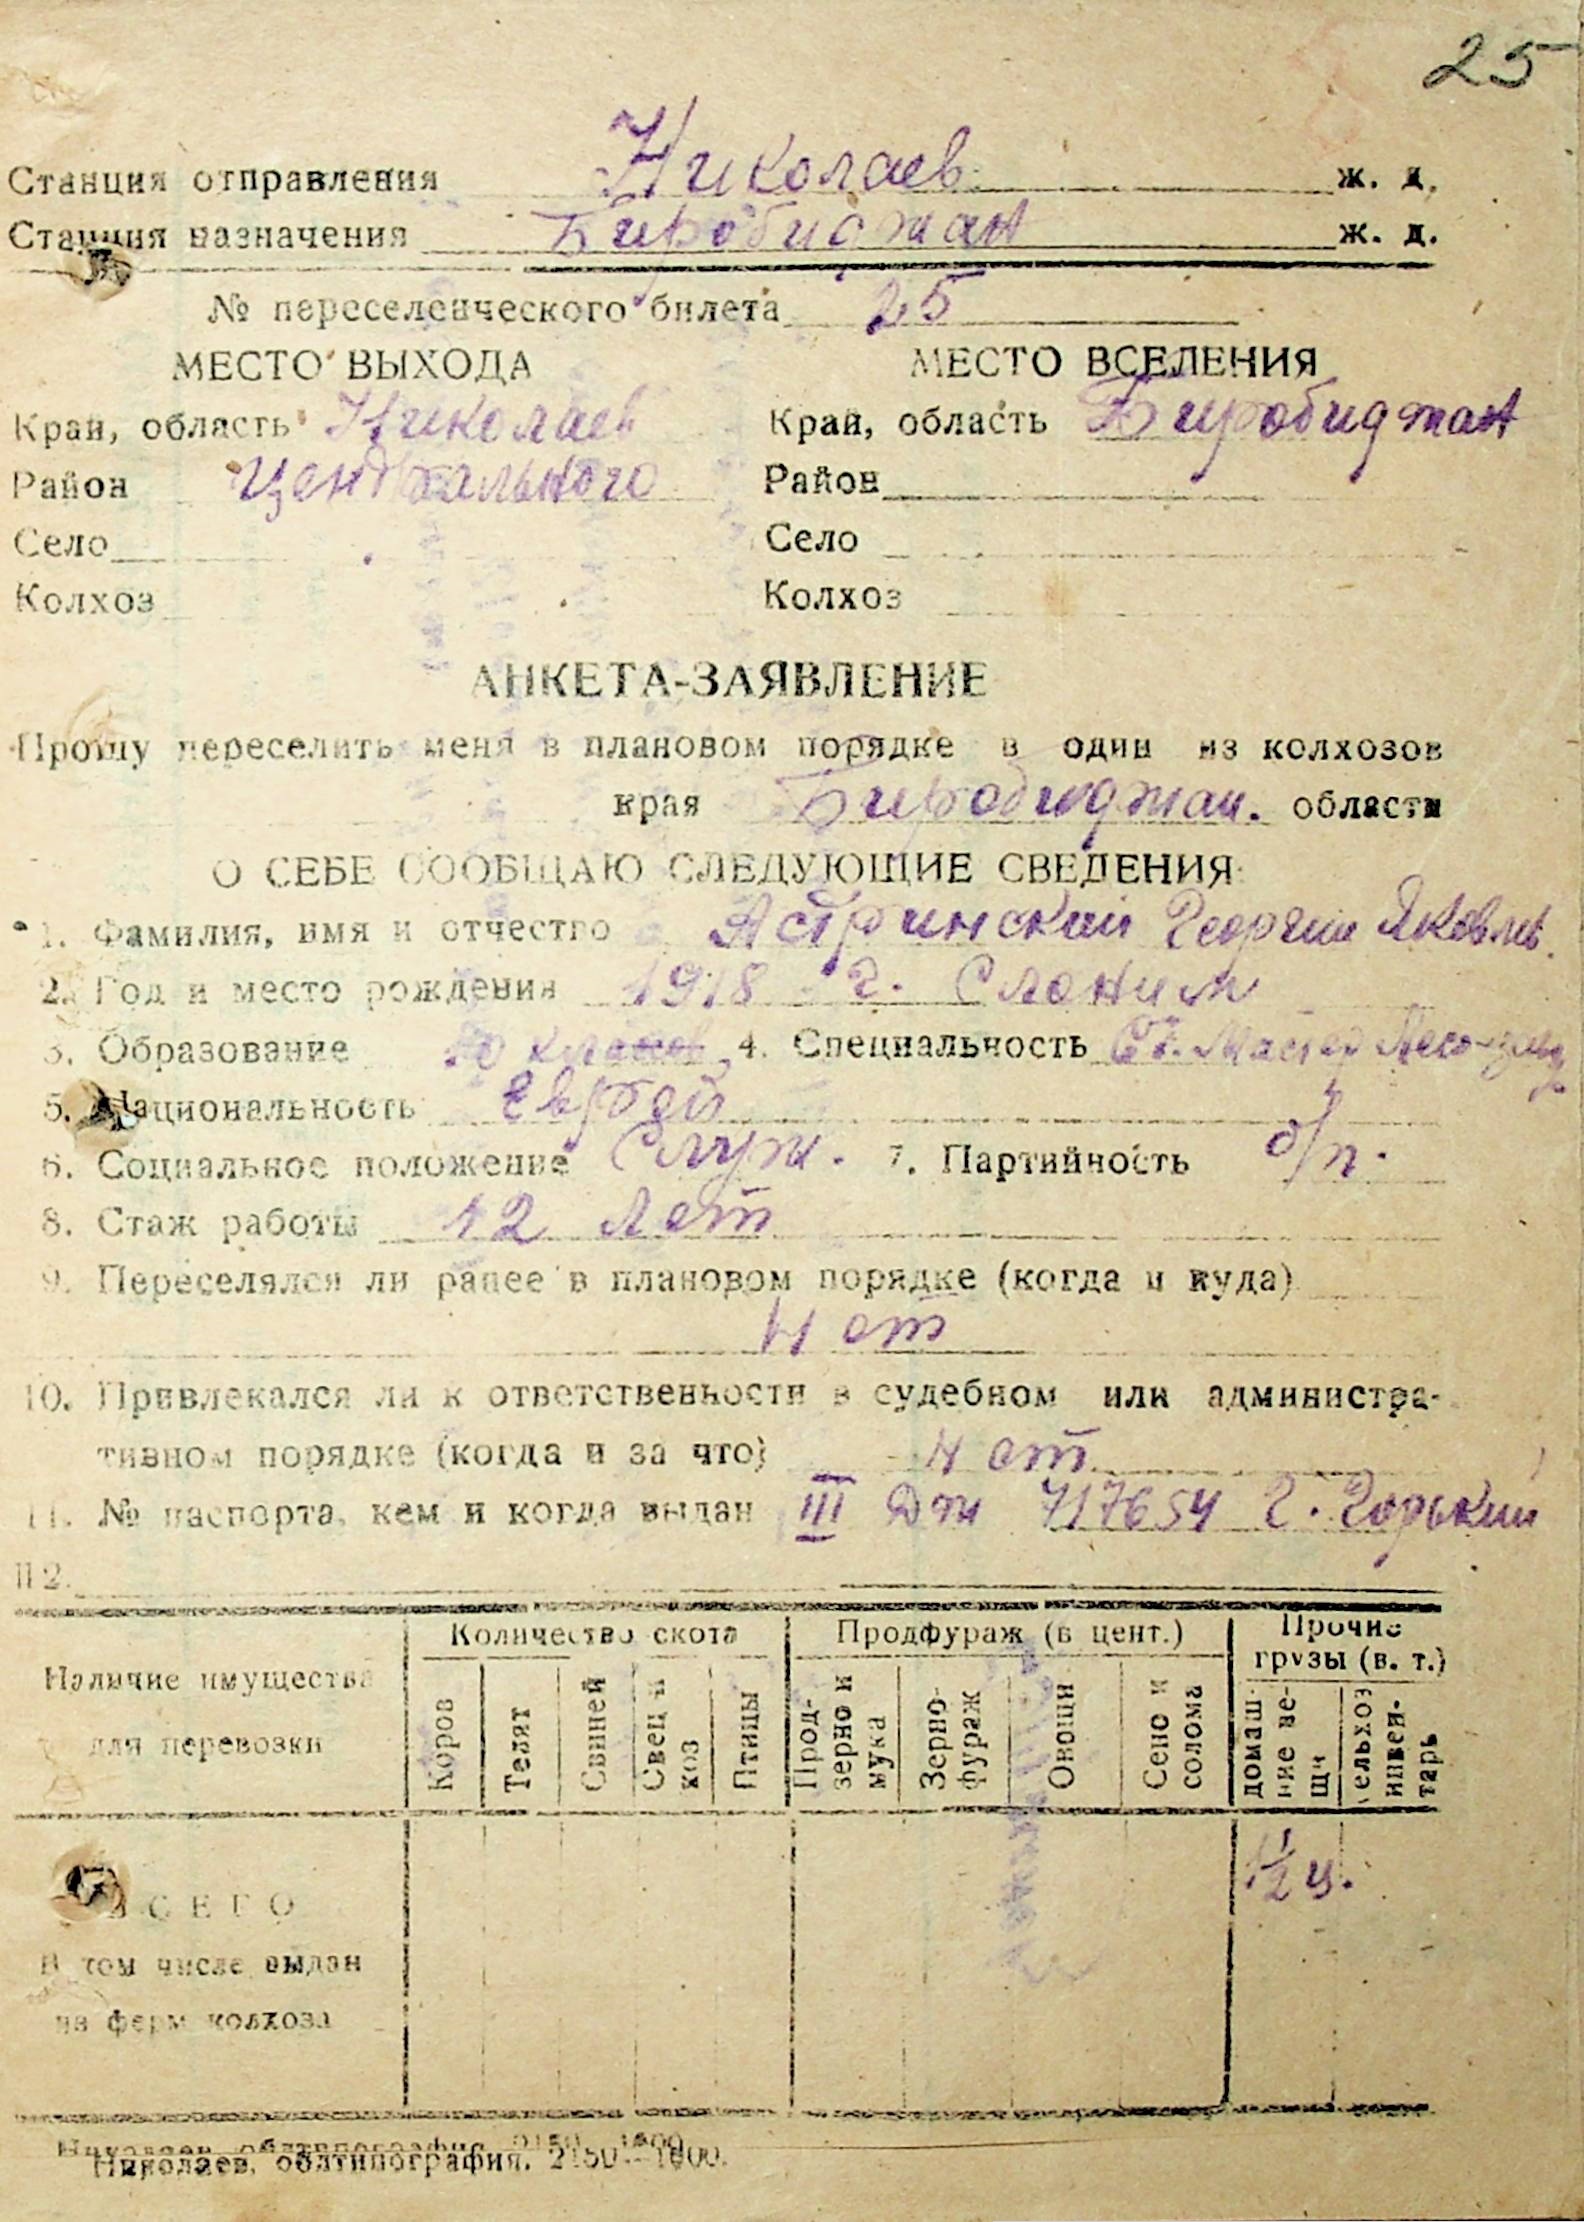 25
Станция отправления Николаев ж. д.
Станция назначения Биробиджан ж. д.
№ переселенческого билета 25
МЕСТО ВЫХОДА МЕСТО ВСЕЛЕНИЯ
Край, область Николаев Край, область Биробиджан
Район Центрального Район
Село Село
Колхоз Колхоз
АНКЕТА-ЗАЯВЛЕНИЕ
Прошу переселить меня в плановом порядке в один из колхозов
края Биробиджан. области
О СЕБЕ СООБЩАЮ СЛЕДУЮЩИЕ СВЕДЕНИЯ:
1. Фамилия, имя и отчество Астринский Георгий Яковлев.
2. Год и место рождения 1918 г. Слоним
3. Образование 10 классов 4. Специальность Ст. Мастер Лесо-
5. Национальность Еврей
6. Социальное положение Служ. 7. Партийность б/п.
8. Стаж работы 12 лет
9. Переселялся ли ранее в плановом порядке (когда и куда)
Нет
10. Привлекался ли к ответственности в судебном или администра-
тивном порядке (когда и за что) нет
11. № паспорта, кем и когда выдан III 717654 г. Горький
12.
Наличие имущества для перевозки
Количество скота Продфураж (в цент.) Прочие грузы (в. т.)
Коров Телят Свиней Свец и коз Птицы Прод-зерно и мука Зерно-фураж Овощи Сено и солома домаш-ние ве-щи сельхоз инвен-тарь
ВСЕГО 1½ ц.
В том числе выдан
из ферм колхоза
Николаев, облтипография. 2150—1600.